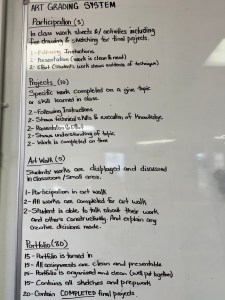 ART GRADING SYSTEM
Participation (5)
In class work sheets &/ activities including
free drawing & sketching for final projects.
1- Following Instructions
2- Presentation (work is clean & neat)
2- Effort (Student's work shows evidence of technique)
Projects (10)
Specific work completed on a give topic
or skill learned in class.
2- Following Instructions
2- Shows technical skills & execution of knowledge.
2- Presentation
2- Shows understanding of topic
2- Work is completed on time
Art Walk (5)
Students' works are displayed and discussed
in classroom / Small areas.
1- Participation in art walk
2- All works are completed for art walk
2- Student is able to talk about their work
and others constructively. And explain any
creative decisions made.
Portfolio (80)
15- Portfolio is turned in
15- All assignments are clean and presentable
15- Portfolio is organised and clean (well put together)
15- Contains all sketches and prepwork
20- Contain COMPLETED final projects